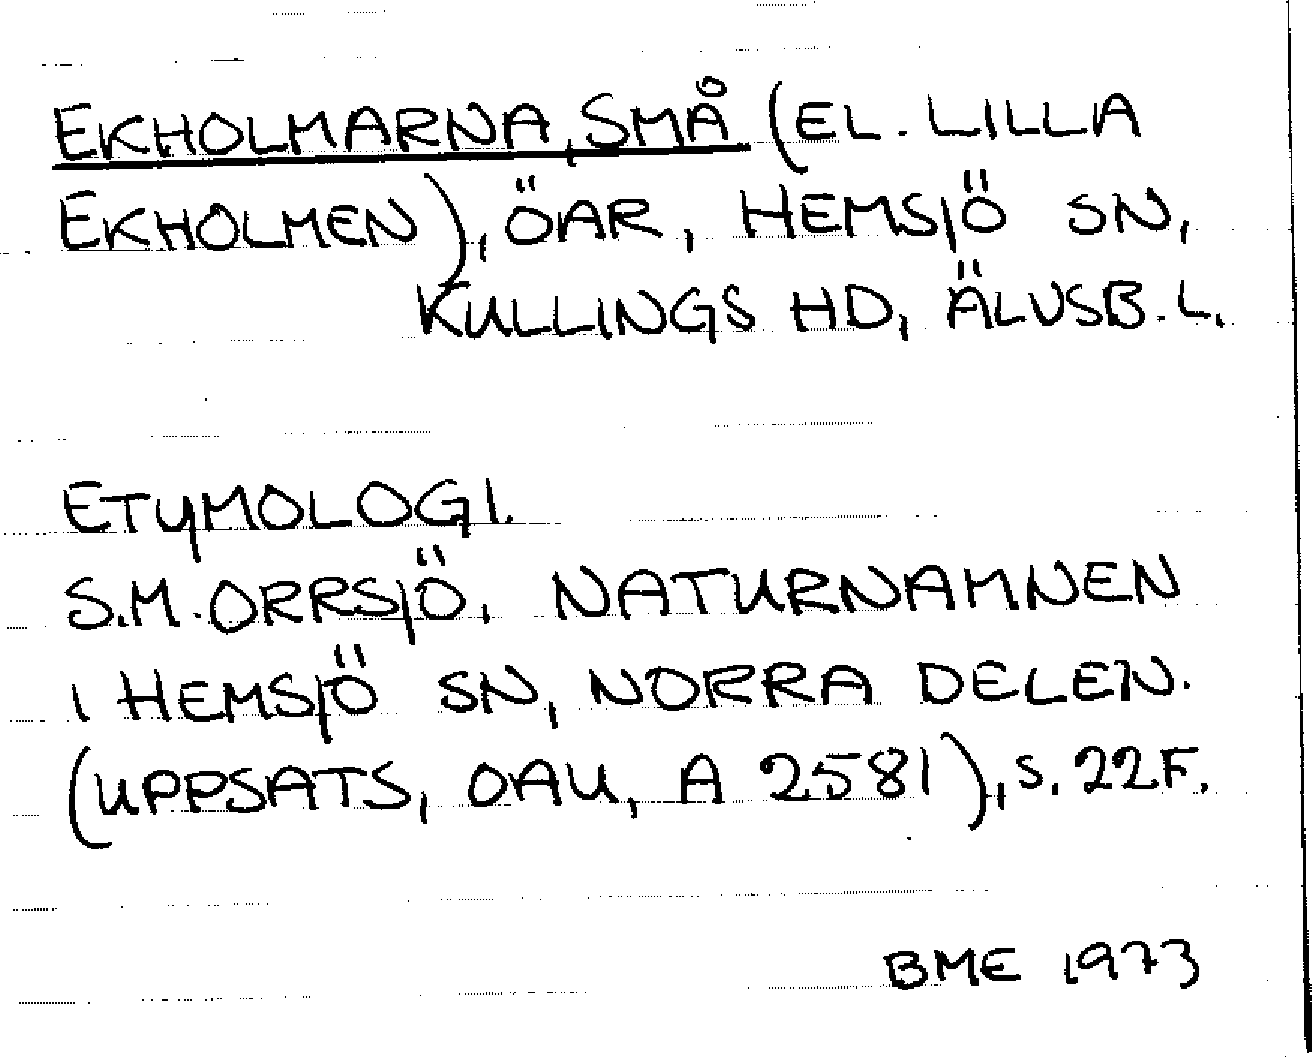 EKHOLMARNA, SMÅ (EL. LILLA
EKHOLMEN), ÖAR, HEMSJÖ SN,
KULLINGS HD, ÄLVSB. L.
ETYMOLOGI.
S.M. ORRSJÖ, NATURNAMNEN
I HEMSJÖ SN, NORRA DELEN.
(UPPSATS, OAU, A 2581), S. 22F.
BME 1973